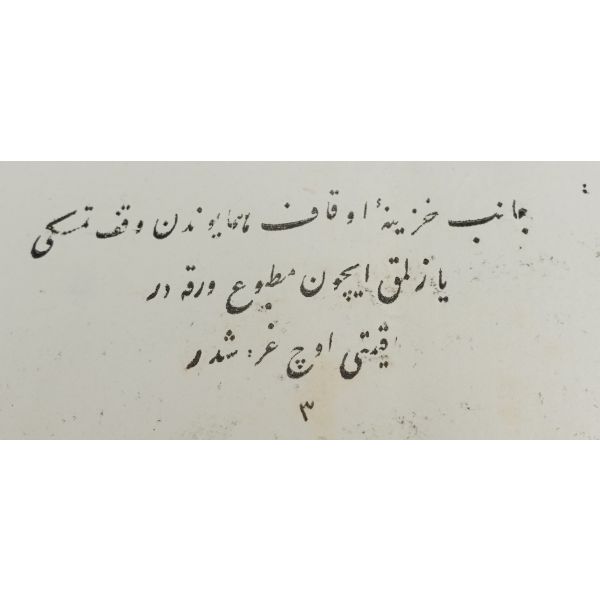 جانب خزینۀ اوقاف همایوندن وقف تمسكی
یازلمق ایچون مطبوع ورقه در
قیمتی اوچ غروشدر
٣